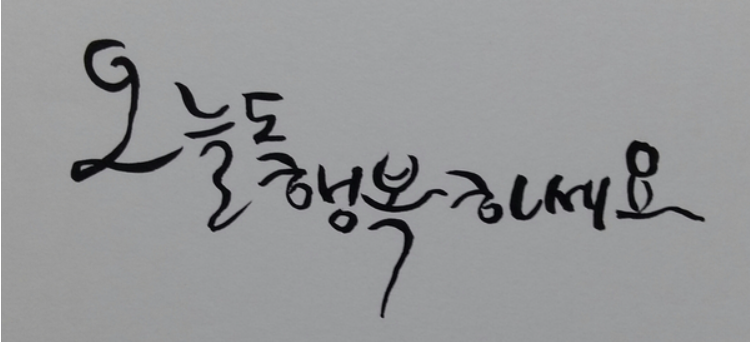 오늘도 행복하세요